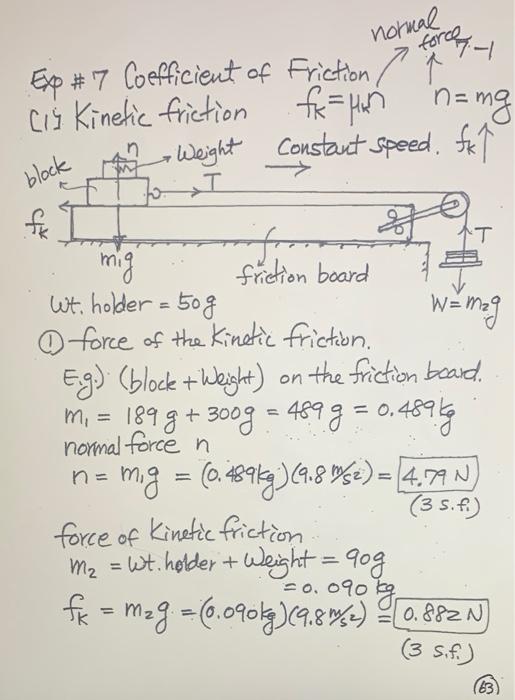 normal
force 7-1
Exp #7 Coefficient of Friction
C1} Kinetic friction fk = μkn n = mg
block n Weight Constant speed. fk↑
T
fk
T
m1g friction board
Wt. holder = 50g W = m2g
① force of the Kinetic friction.
E.g.) (block + Weight) on the friction board.
m1 = 189 g + 300g = 489 g = 0.489 kg
normal force n
n = m1g = (0.489kg)(9.8 m/s2) = 4.79 N
(3 s.f.)
force of Kinetic friction
m2 = Wt. holder + Weight = 90g
= 0.090 kg
fk = m2g = (0.090kg)(9.8 m/s2) = 0.882 N
(3 s.f.)
(63)